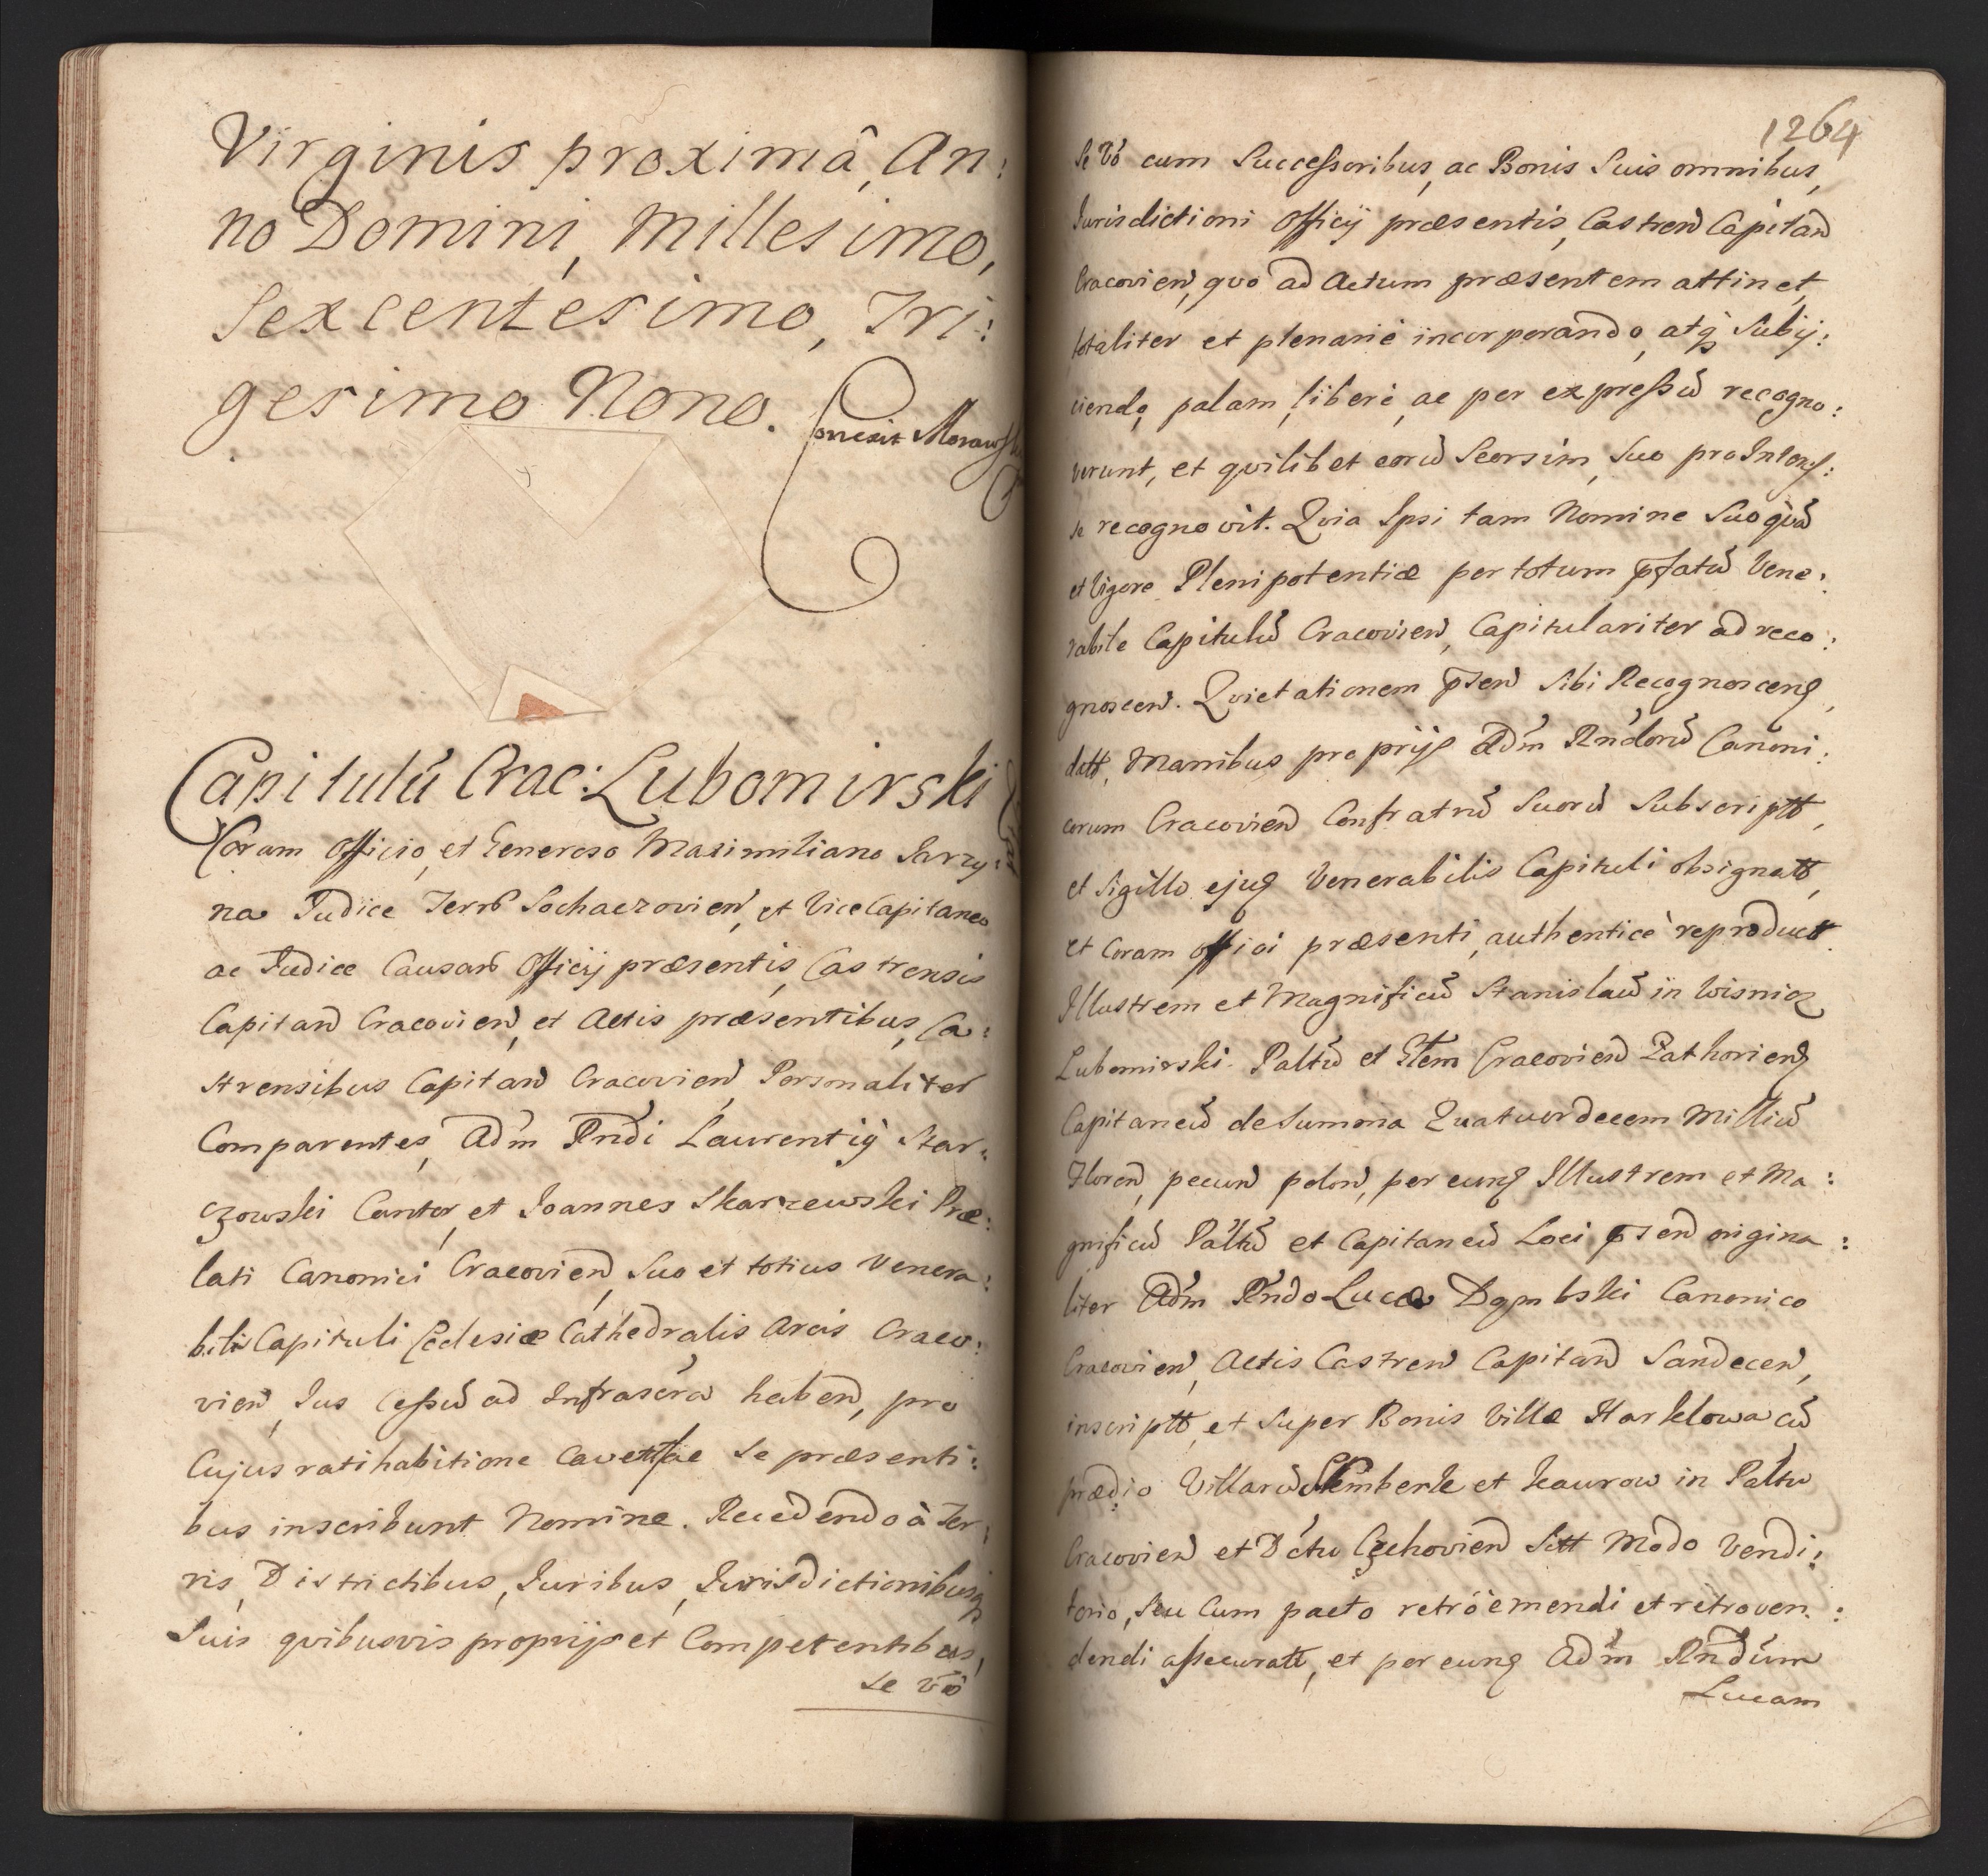 Virginis proximâ, An:
no Domini, Millesimo,
Sexcentesimo, Tri:
gesimo Nono.
Correxit Morawski
Capitulũ Crac: Lubomirski
Coram Officio, et Generoso Maximiliano Jarzy:
na Judice Terrũ Sochaczovien̄, et ViceCapitaneo
ac Judice Causarũ Officij præsentis, Castrensis
Capitan̄ Cracovien̄, et Actis præsentibus, Ca:
strensibus Capitan̄ Cracovien̄ Personaliter
Comparentes, Adm̄ Rn̄di Laurentiȳ Star:
czowski Cantor, et Joannes Skarzewski Præ:
lati Canonici Cracovien̄, Suo et totius Venera:
bilis Capituli Ecclesiæ Cathedralis Arcis Craco:
vien̄, Jus Cessũ ad Infrascra haben̄, pro
Cujus ratihabitione Cavett se præsenti:
bus inscribunt Nomine. Recedendo à Ter:
ris, Districtibus, Juribus, Jurisdictionibusq̃
Suis quibusvis proprijs et Competentibus,
Se vo
1264
Se Vo cum Successoribus, ac Bonis Suis omnibus,
Jurisdictioni Officij præsentis, Castren̄ Capitan̄
Cracovien̄, quo ad Actum præsentem attinet,
totaliter et plenarie incorporando, atq̃ Subij:
ciendo, palam, libere, ac per expressũ recogno:
verunt, et quilibet eorũ Seorsim, Suo pro Inters:
se recognovit. Quia Ipsi tam Nomine Suo quã
et Vigore Plenipotentiæ per totum p̃fatũ Vene:
rabile Capitulũ Cracovien̄, Capitulariter ad reco:
gnoscen̄. Quietationem p̃sen̄ Sibi Recognoscens,
datt, Manibus proprijs Adm̄ Rn̄dorũ Canoni:
corum Cracovien̄ Confratrũ Suorũ Subscriptt,
et Sigillo ejus Venerabilis Capituli obsignatt,
et Coram offici præsenti, authentice reproductt.
Illustrem et Magnificũ Stanislaũ in Wisnicz
Lubomirski Paltũ et Glem Cracovien̄ Zathorien̄
Capitaneũ de Summa Quatuordecem Milliũ
Floren̄, pecun̄ polon̄, per eund Illustrem et Ma:
gnificũ Paltũ et Capitaneũ Loci p̃sen̄ origina:
liter Adm̄ Rn̄do Lucæ Dąmbski Canonico
Cracovien̄, Actis Castren̄ Capitan̄ Sandecen̄,
inscriptt, et Super Bonis Villæ Harklowa cũ
prædio Villarũ Szlemberk et Knurow in Paltu
Cracovien̄ et Dc̃tu Czchovien̄ Sitt Modo Vendi:
torio, Seu Cum pacto retroemendi et retroven:
dendi assecuratt, et per eund Adm̄ Rn̄dum
Lucam